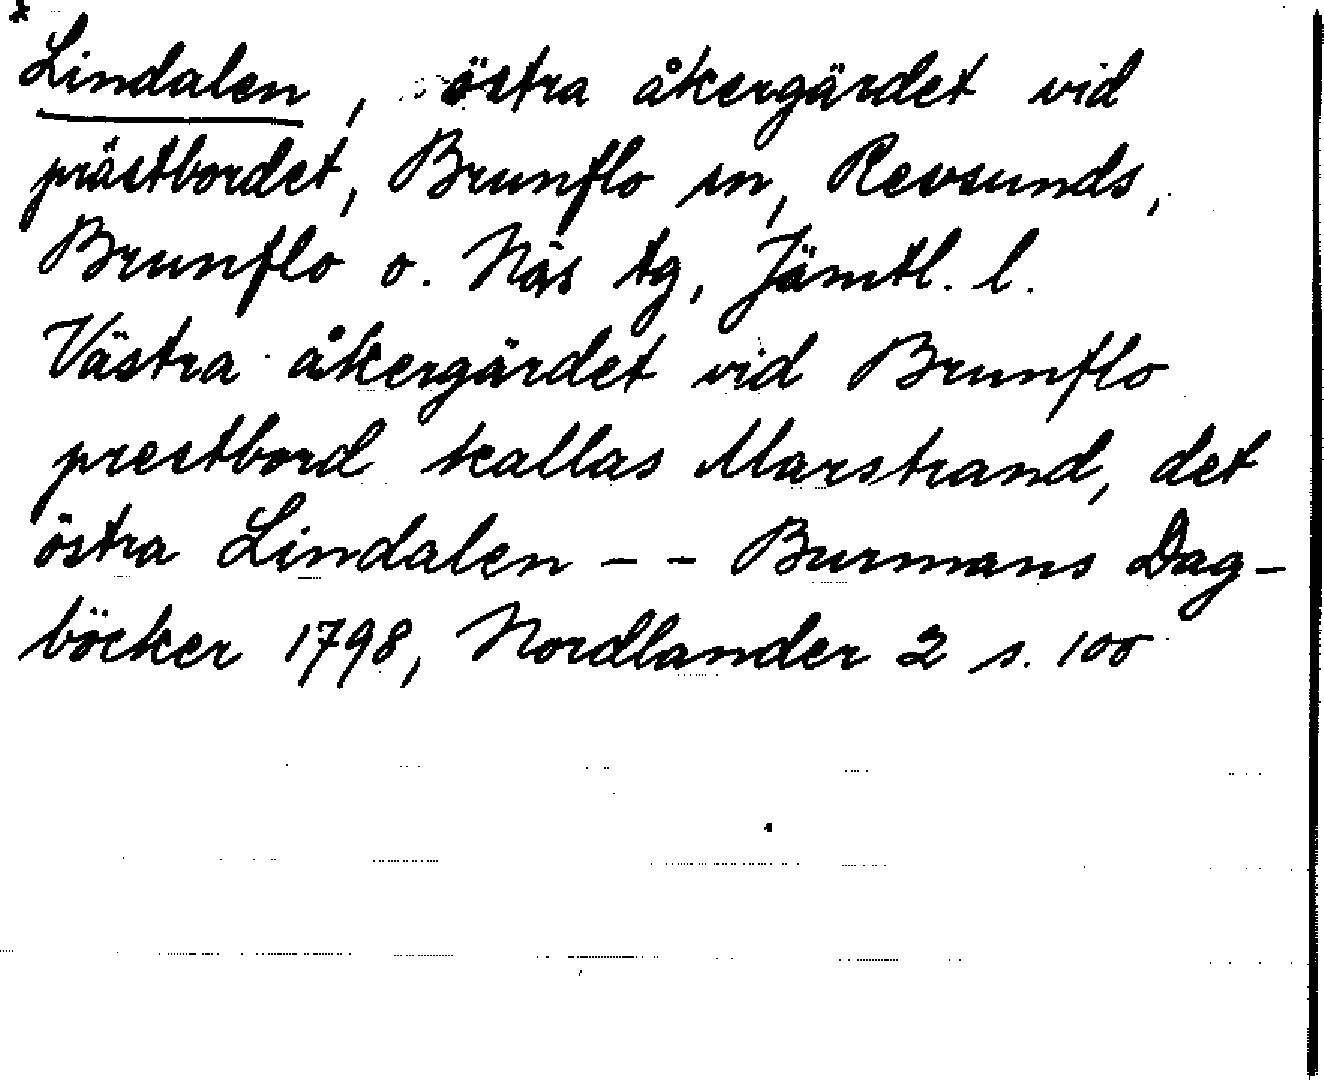 x
Lindalen, östra åkergärdet vid
prästbordet, Brunflo sn, Revsunds,
Brunflo o. Näs tg, Jämtl. l.
Västra åkergärdet vid Brunflo
prestbord kallas Marstrand, det
östra Lindalen - - Burmans Dag-
böcker 1798, Nordlander 2 s. 100